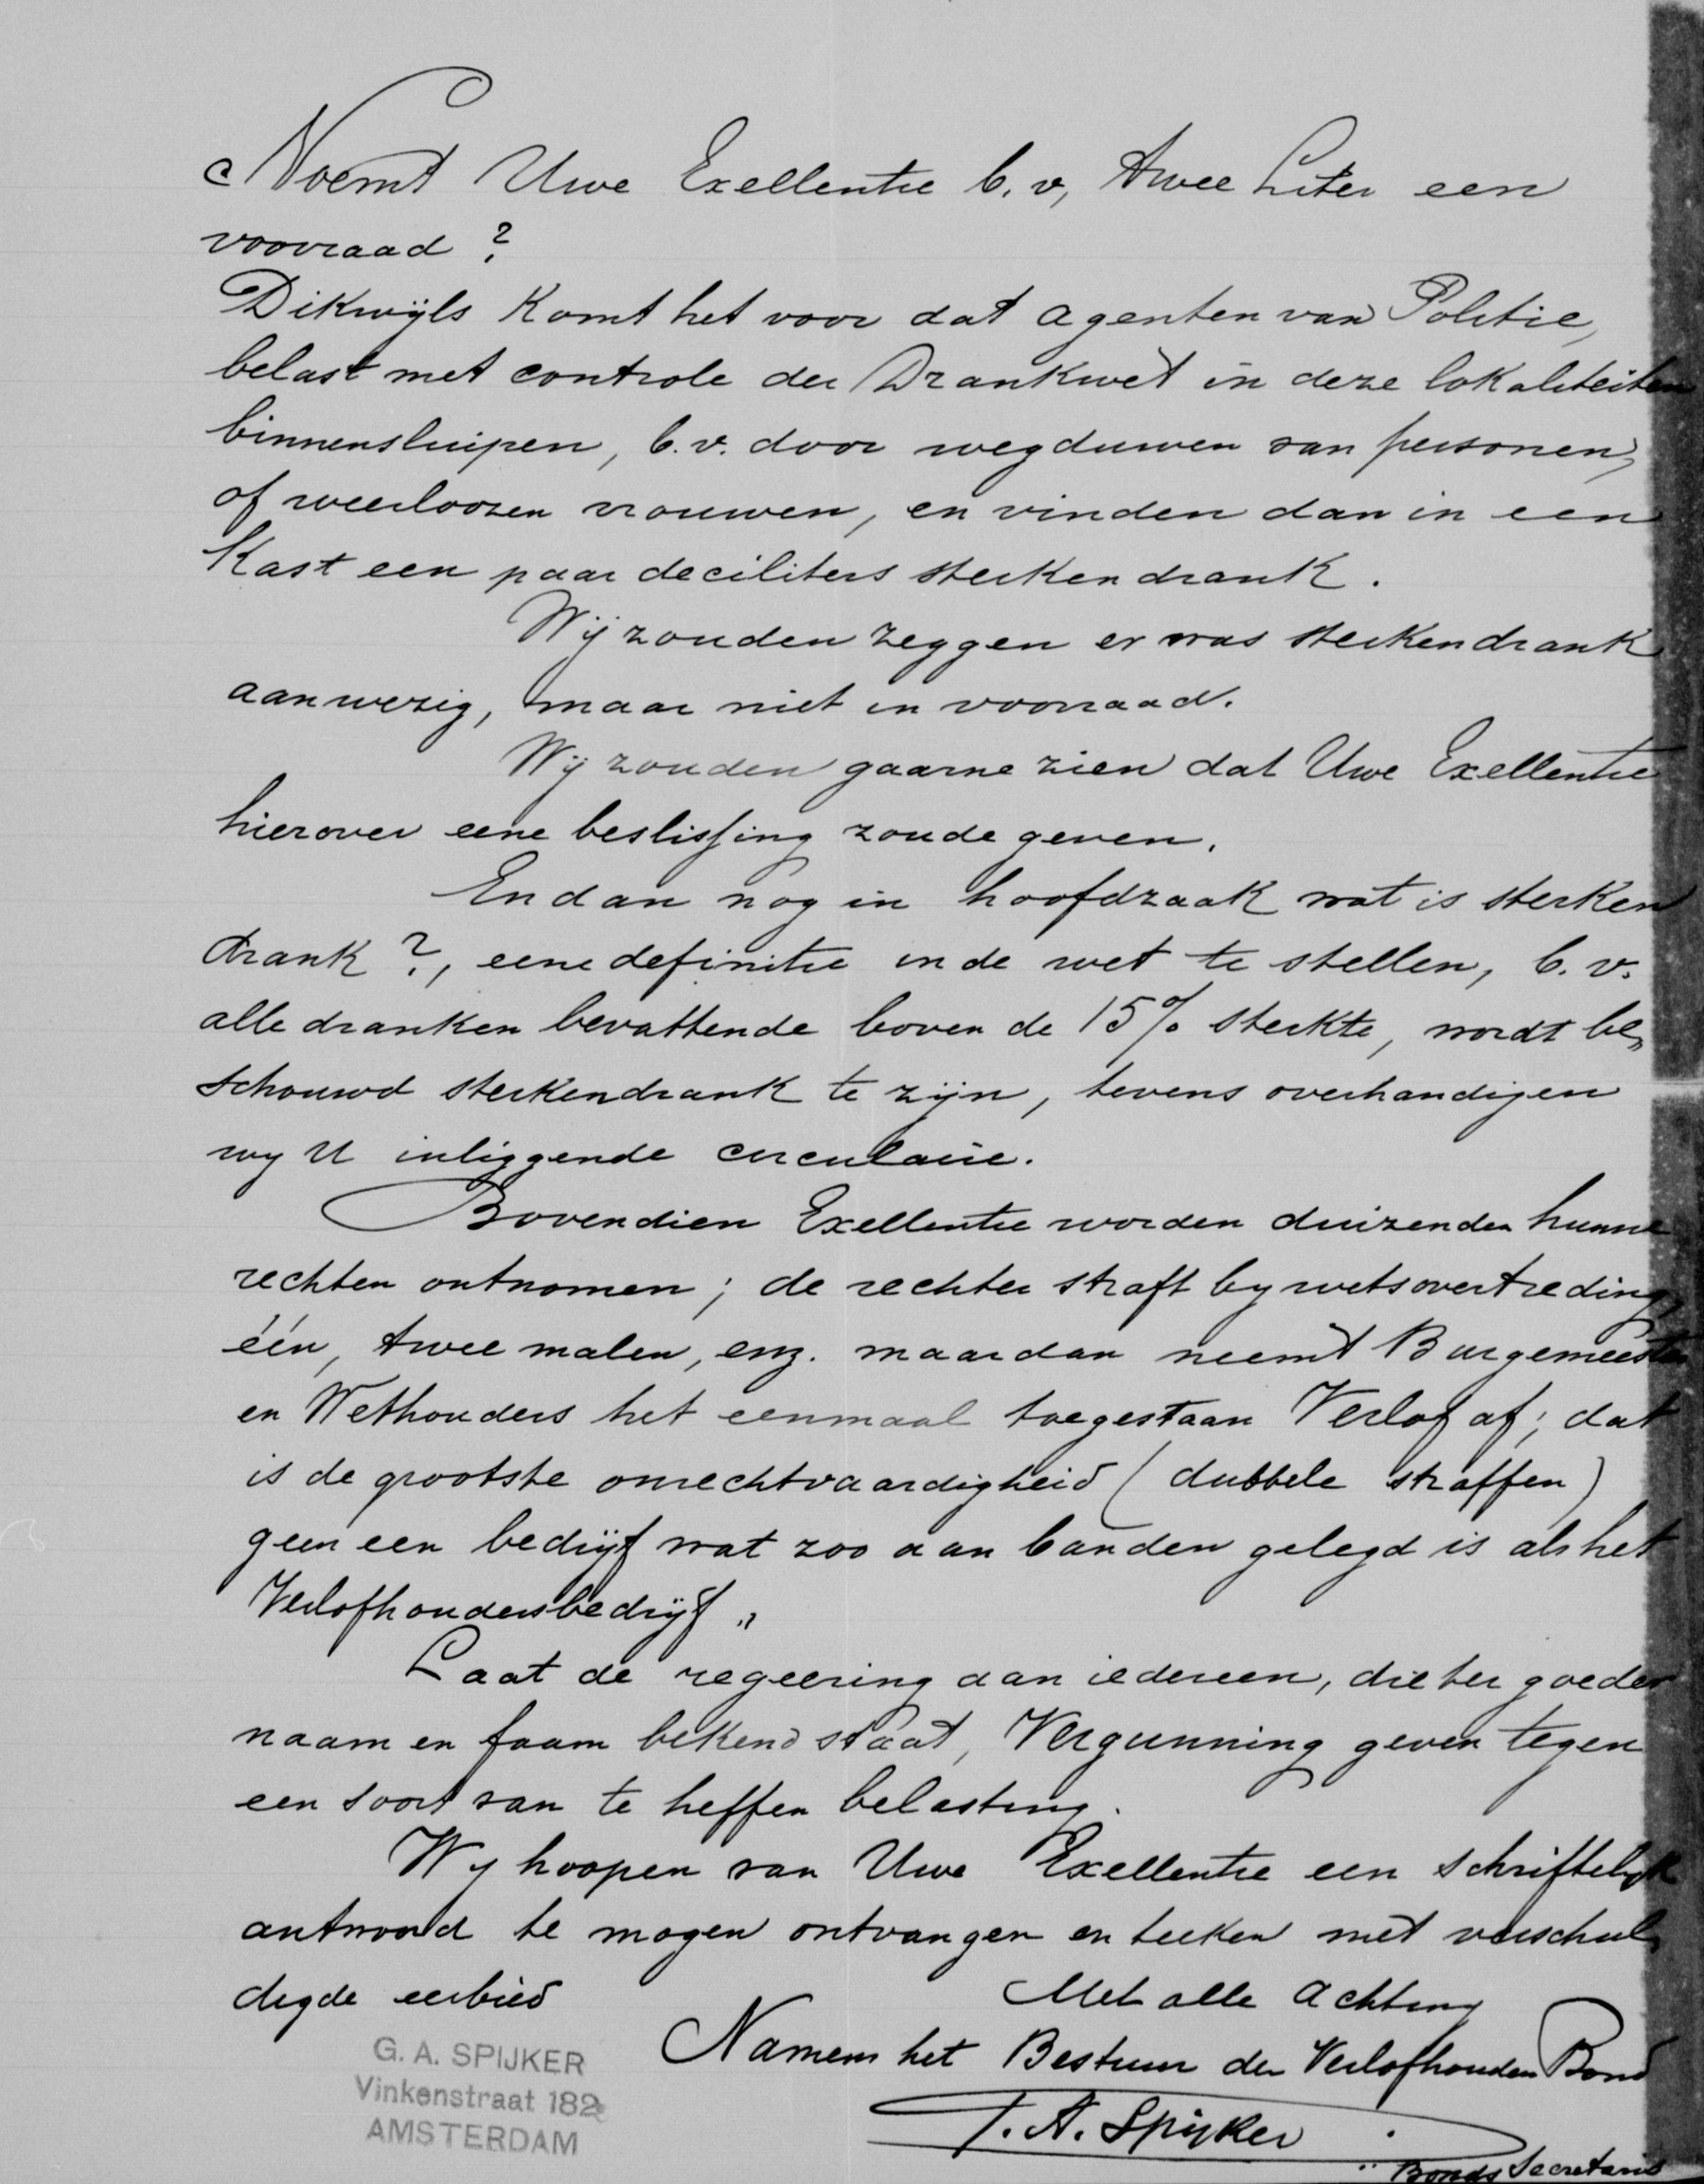 Noemt Uwe Exellentie b.v, twee Liter een
voorraad?
Dikwijls komt het voor dat agenten van Politie,
belast met controle der Drankwet in deze lokaliteiten
binnensluipen, b.v. door wegduwen van personen,
of weerloozen vrouwen, en vinden dan in een
Kast een paar deciliters sterkendrank.
Wij zouden zeggen er was sterkendrank
aanwezig, maar niet in voorraad.
Wij zouden gaarne zien dat Uwe Exellentie
hierover eene beslissing zoude geven.
En dan nog in hoofdzaak wat is sterken
drank?, eene definitie in de wet te stellen, b.v.
alle dranken bevattende boven de 15% sterkte, wordt be„
schouwd sterkendrank te zijn, tevens overhandigen
wy U inliggende circulaire.
Bovendien Exellentie worden duizenden hunne
rechten ontnomen; de rechter straft by wetsovertreding,
één, twee malen, enz. maar dan neemt Burgemeester
en Wethouders het eenmaal toegestaan Verlof af; dat
is de grootste onrechtvaardigheid (dubbele straffen)
geen een bedrijf wat zoo aan banden gelegd is als het
Verlofhoudersbedrijf„
Laat de regeering aan iedereen, die ter goeder
naam en faam bekend staat, Vergunning geven tegen
een soort van te heffen belasting.
Wy hoopen van Uwe Exellentie een schriftelijk
antwoord te mogen ontvangen en teeken met verschul„
digde eerbied
Met alle achting
Namens het Bestuur der Verlofhouders Bond
G. A. SPIJKER
Vinkenstraat 182
AMSTERDAM
G. A. Spijker
Bonds Secretaris